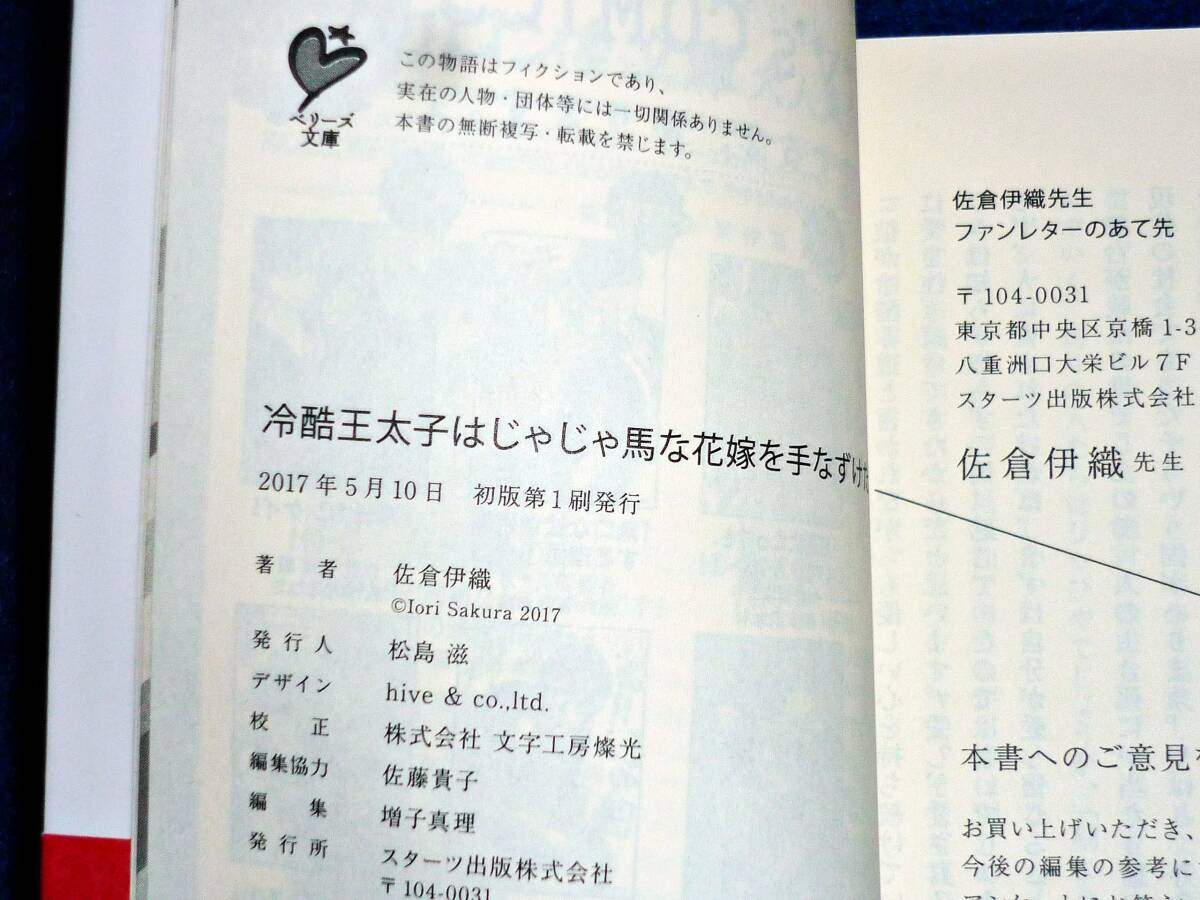 ベリーズ
文庫
この物語はフィクションであり、
実在の人物・団体等には一切関係ありません。
本書の無断複写・転載を禁じます。
冷酷王太子はじゃじゃ馬な花嫁を手なずけ
2017年5月10日 初版第1刷発行
著 者 佐倉伊織
©Iori Sakura 2017
発行人 松島 滋
デザイン hive & co.,ltd.
校 正 株式会社 文字工房燦光
編集協力 佐藤貴子
編 集 増子真理
発行所 スターツ出版株式会社
〒104-0031
佐倉伊織先生
ファンレターのあて先
〒104-0031
東京都中央区京橋1-3
八重洲口大栄ビル7F
スターツ出版株式会社
佐倉伊織先生
本書へのご意見
お買い上げいただき、
今後の編集の参考に